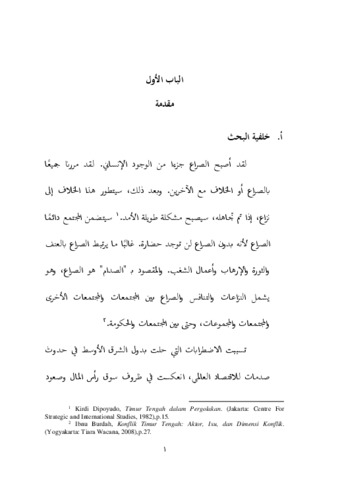 الباب الأول
مقدمة
أ. خلفية البحث
لقد أصبح الصراع جزءا من الوجود الإنساني. لقد مررنا جميعًا
بالصراع أو الخلاف مع الآخرين. وبعد ذلك، سيتطور هذا الخلاف إلى
نزاع، إذا تم تجاهله، سيصبح مشكلة طويلة الأمد.١ سيتضمن المجتمع دائمًا
الصراع لأنه بدون الصراع لن توجد حضارة. غالبًا ما يرتبط الصراع بالعنف
والثورة والإرهاب وأعمال الشغب. والمقصود بـ "الصدام" هو الصراع، وهو
يشمل النزاعات والتنافس والصراع بين المجتمعات والمجتمعات الأخرى
والمجتمعات والمجموعات، وحتى بين المجتمعات والحكومة.٢
تسببت الاضطرابات التي حلت بدول الشرق الأوسط في حدوث
صدمات للاقتصاد العالمي، انعكست في ظروف سوق رأس المال وصعود
1 Kirdi Dipoyudo, Timur Tengah dalam Pergolakan. (Jakarta: Centre For
Strategic and International Studies, 1982),p.15.
2 Ibnu Burdah, Konflik Timur Tengah: Aktor, Isu, dan Dimensi Konflik.
(Yogyakarta: Tiara Wacana, 2008),p.27.
١